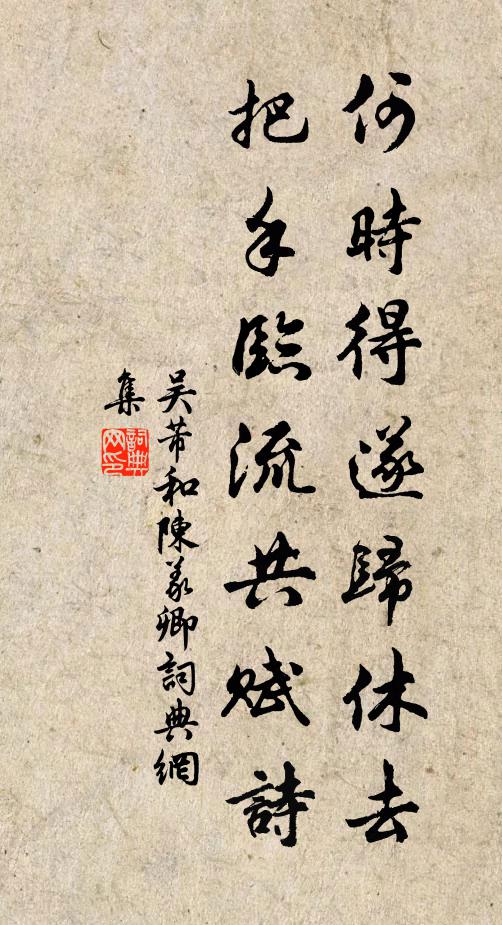 何時得遂歸休去
把手臨流共賦詩
吴芾和陳羲卿詞典網
集
詞典
网印